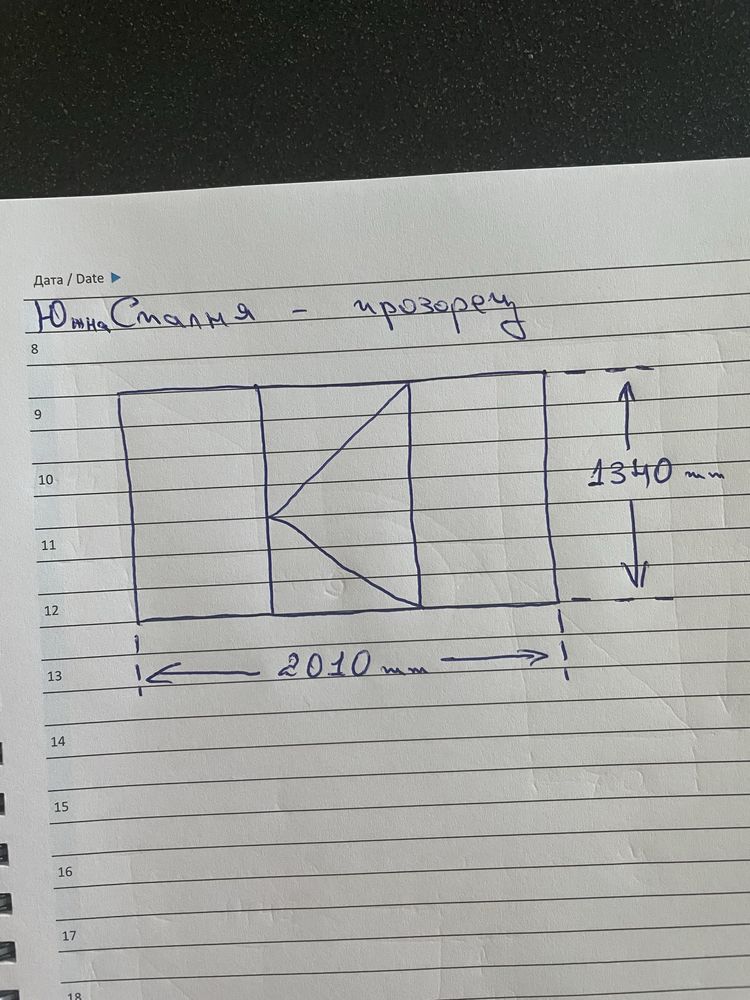 Дата / Date ▶
Южна Спалня - прозорец
8
9
10
1340 mm
11
12
2010 mm
13
14
15
16
17
18